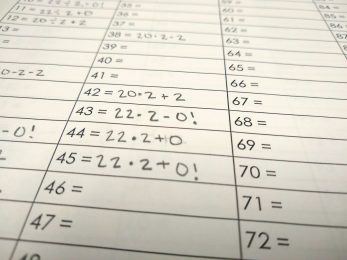 11 = 22 ÷ 2 + 0!
12 = 20 ÷ 2 + 2
0-2-2
-0!
36 =
37 =
38 = 20·2-2
39 =
40 =
41 =
42 = 20·2+2
43 = 22·2-0!
44 = 22·2+0
45 = 22·2+0!
46 =
47 =
60 =
61 =
62 =
63 =
64 =
65 =
66 =
67 =
68 =
69 =
70 =
71 =
72 =
84 =
85 =
86
87